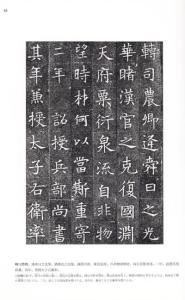 轉司農卿逢舜日之光
華睹漢官之克復國淵
天府粟衍泉流自非物
望時材何以當斯重寄
二年 詔授兵部尚書
其年兼授太子右衛率